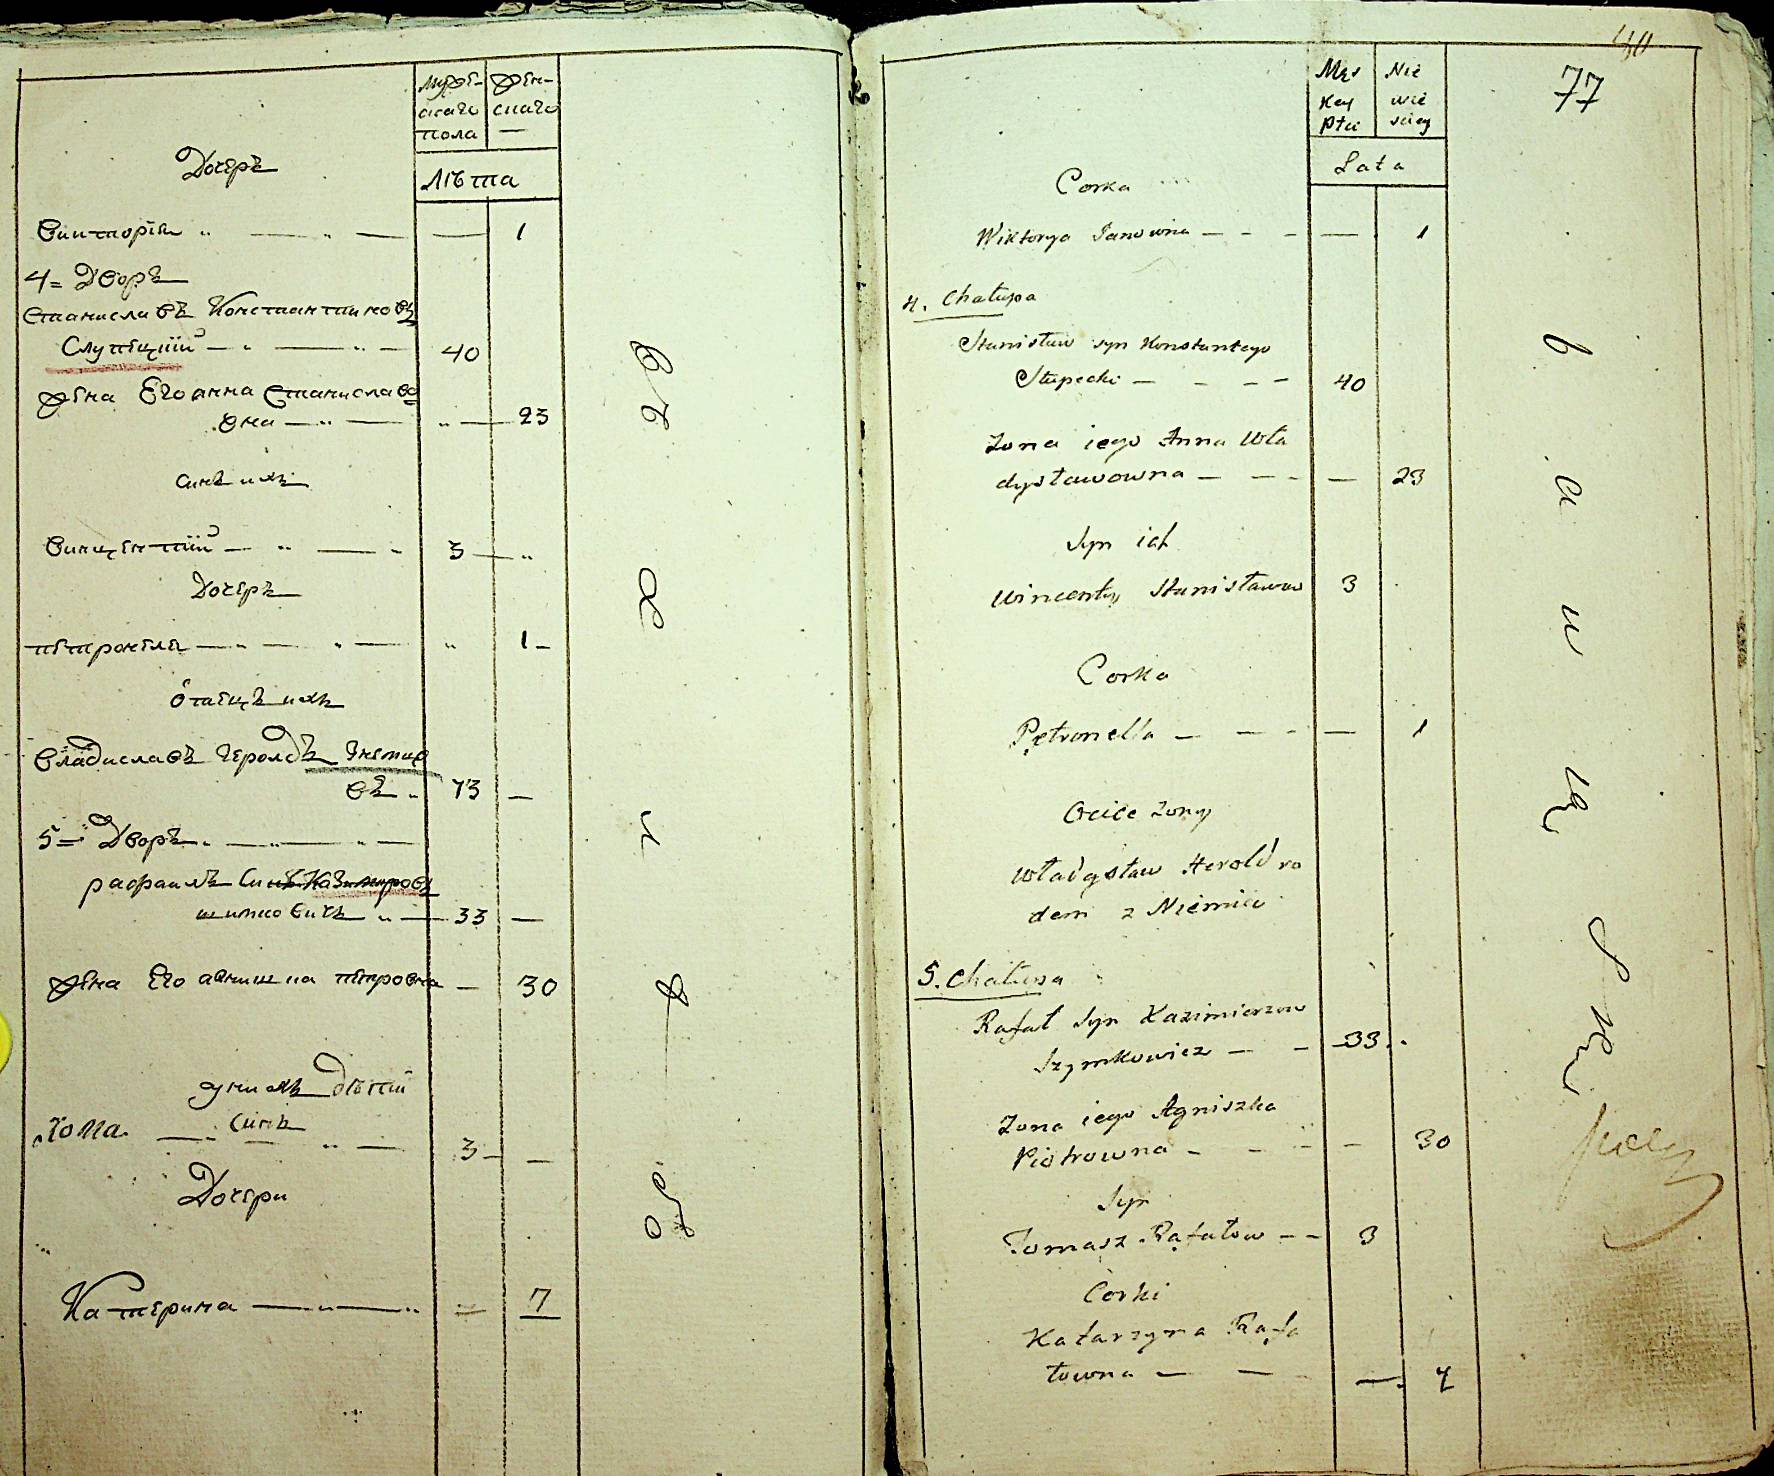 Мужескаго пола
Женскаго
Лѣта
Дочеръ
Викторіа 1
4= Дворъ
Станиславъ Константиновъ
Слупецкій 40
Жена Его Анна Станиславо
вна 23
синъ ихъ
Винцентій 3
Дочеръ
Петронеля 1
Отецъ ихъ
Владиславъ Геролдъ Знемцо
въ 73
5= Дворъ
рафаилъ Синъ Казимировъ
шимковичъ 33
Жена Его Агнишка Петровна 30
у них Дѣтей
Синъ
Тома 3
Дочери
Катерина 7
40
77
Męs
key
płci
Nie
wie
sciey
Lata
Corka
Wiktorya Janowna 1
4. Chałupa
Stanisław syn Konstantego
Słupecki 40
Zona iego Anna Wła
dysławowna 23
Syn ich
Wincenty Stanisławow 3
Corka
Petronella 1
Ociec Zony
Władysław Herold ro
dem z Niemiec
5. Chałupa
Rafał Syn Kazimierzow
Szymkowicz 33
Zona iego Agniszka
Piotrowna 30
Syn
Tomasz Rafałow 3
Corki
Katarzyna Rafa
łowna 7